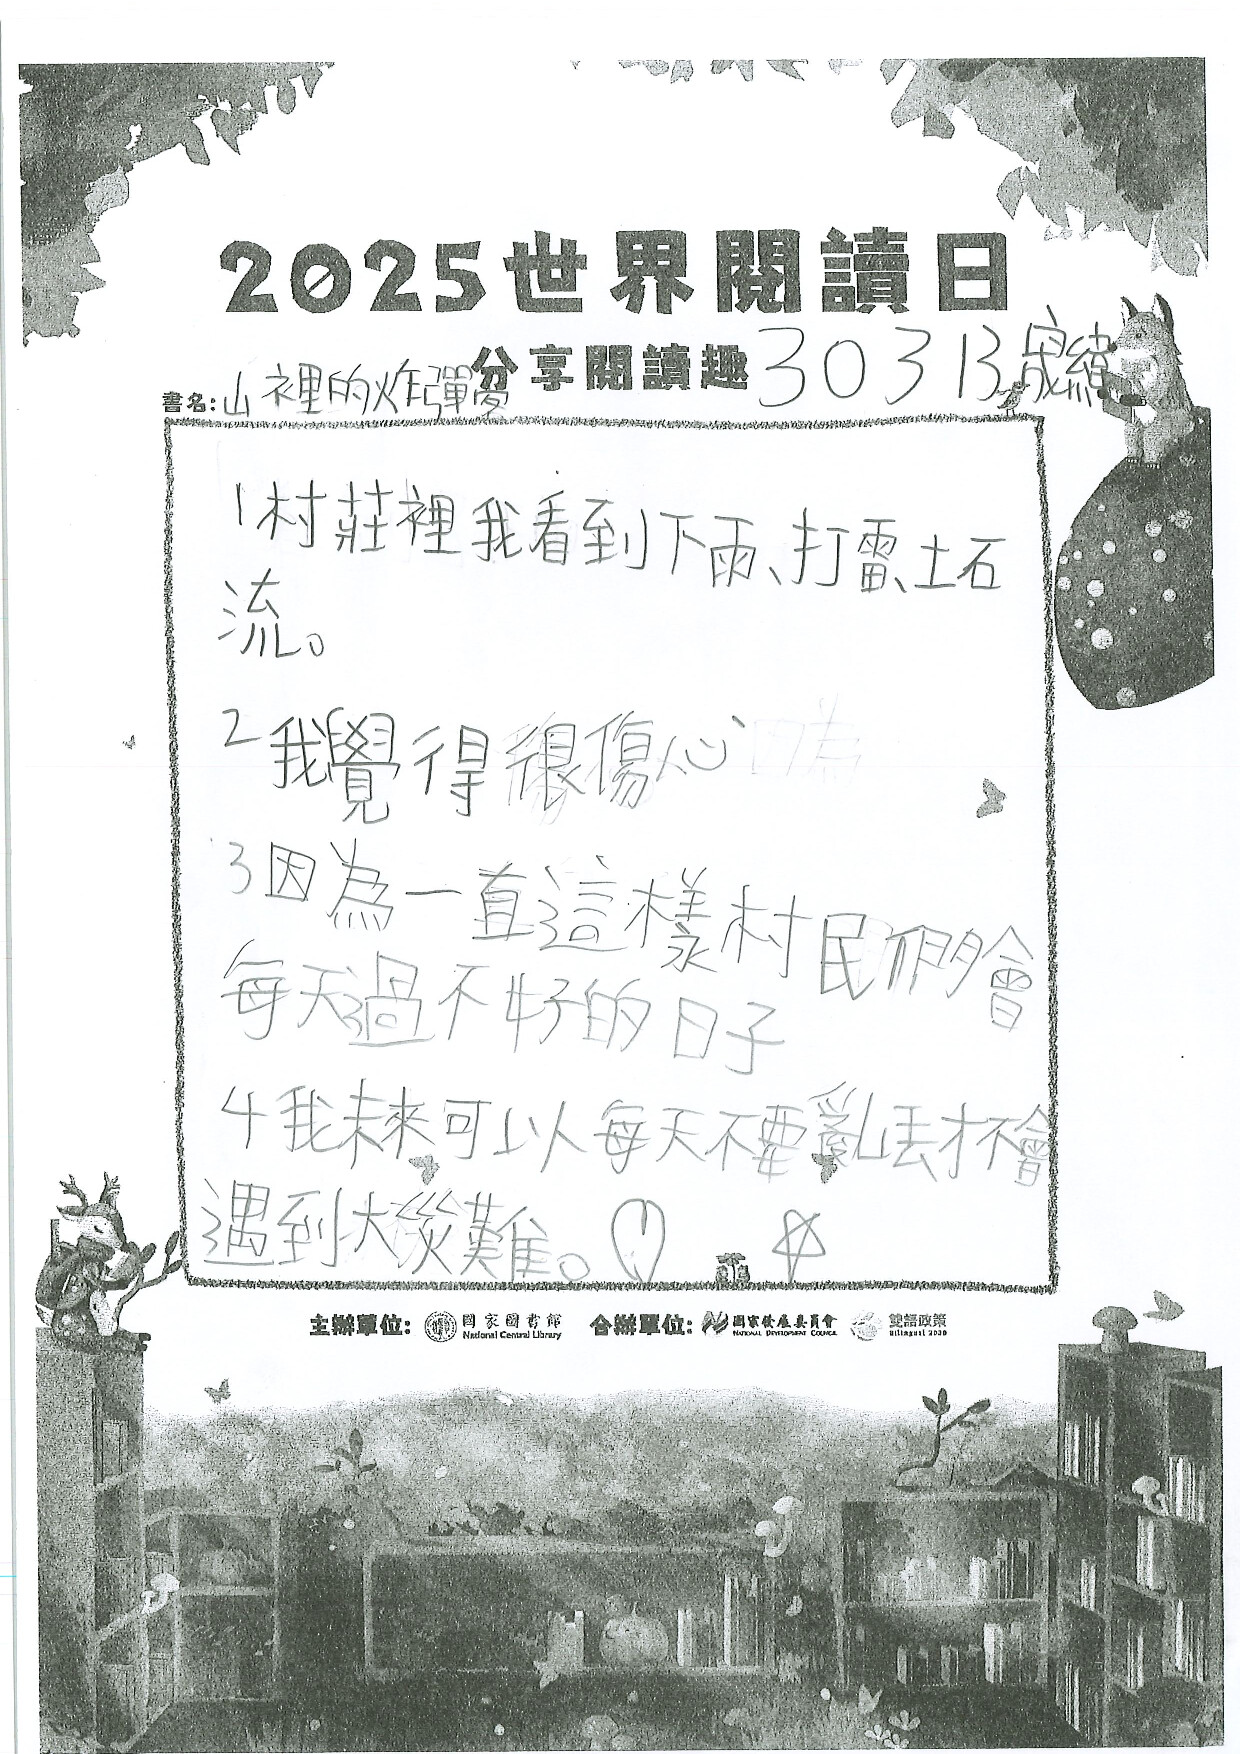 2025世界閱讀日
分享閱讀趣
30313
書名:山裡的炸彈
1村莊裡我看到下雨、打雷、土石
流。
2我覺得很傷心
因為
3因為一直這樣村民們會
每天過不好的日子
4我未來可以每天不要亂丟才不會
遇到大災難。
主辦單位: 國家圖書館 合辦單位: 國家發展委員會 雙語政策
National Central Library NATIONAL DEVELOPMENT COUNCIL Bilingual 2030